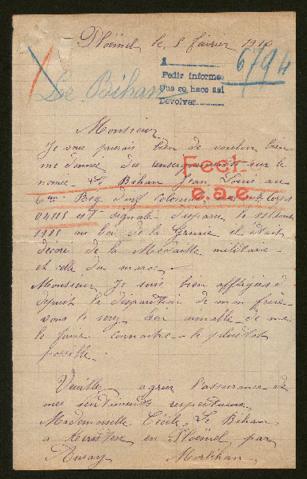 Ploëmel le 8 février 1916
1
Pedir informe
Que se hace así
Devolver
6794
Le Béhan
Monsieur
Je vous prierais bien de vouloir bien
me donner des renseignements sur le
nommé Le Béhan Jean Louis au
6me Reg d'inf coloniale
signalé disparu le
1915 au bois de la Gruerie il était
décoré de la Médaille militaire
et celle du maroc
Monsieur Je suis bien affligée
la disparition de mon frère
vous le serez bien aimable de me
le faire connaître le plus tôt
possible
Fect.
e.a.e.
Veuillez agréer l'assurance de
mes sentiments respectueux
Mademoiselle Cécile Le Béhan
à en Ploëmel par
Auray Morbihan